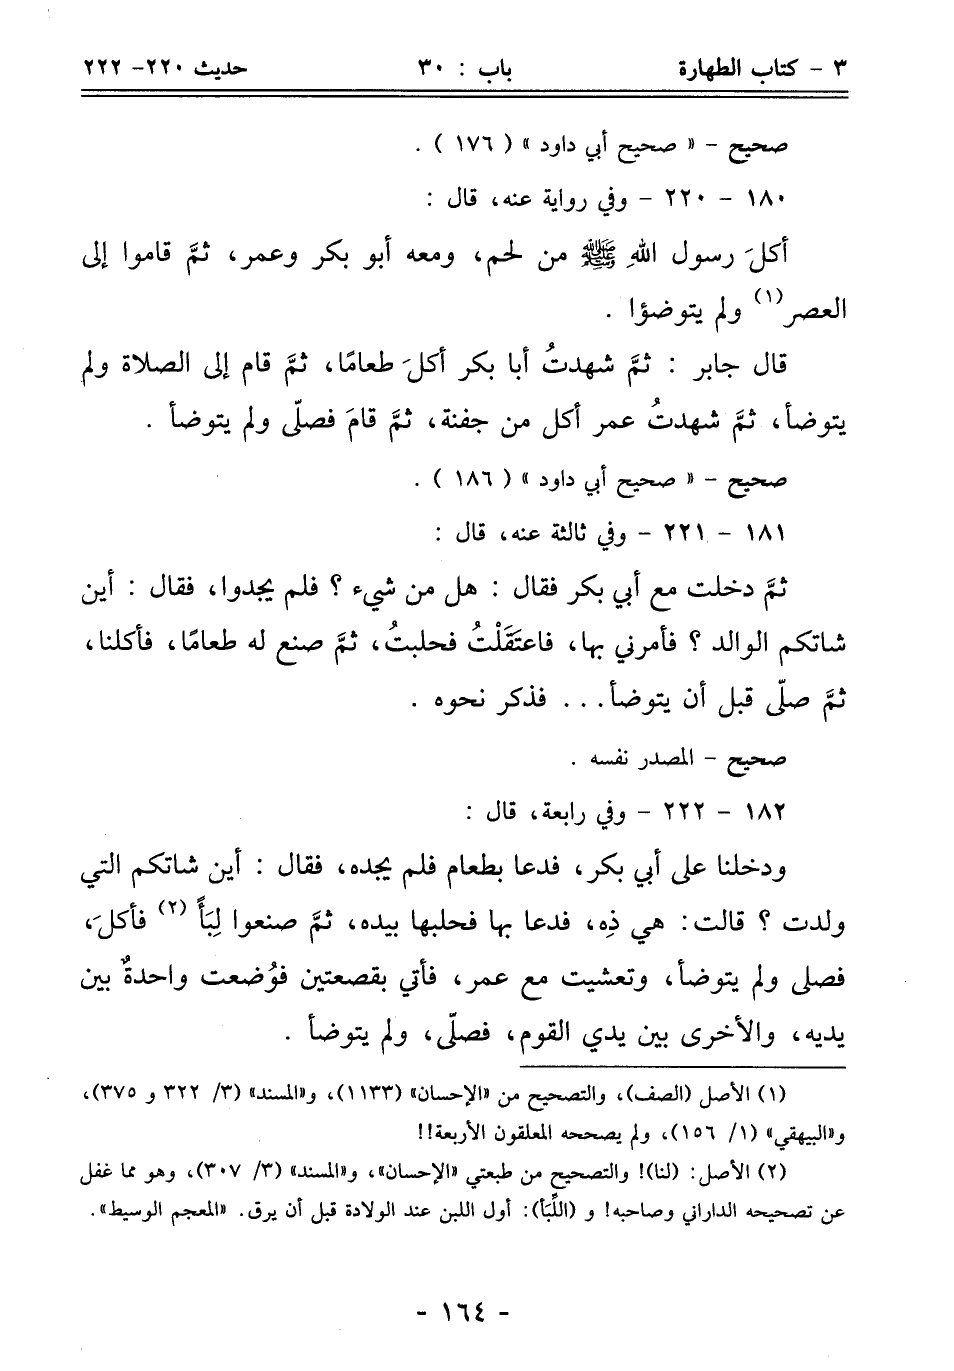 ٣ - كتاب الطهارة باب : ٣٠ حديث ٢٢٠- ٢٢٢
صحيح - « صحيح أبي داود » ( ١٧٦ ) .
١٨٠ - ٢٢٠ - وفي رواية عنه، قال :
أكلَ رسول اللهِ ﷺ من لحم، ومعه أبو بكر وعمر، ثمَّ قاموا إلى
العصر(١) ولم يتوضؤا .
قال جابر : ثمَّ شهدتُ أبا بكر أكلَ طعامًا، ثمَّ قام إلى الصلاة ولم
يتوضأ، ثمَّ شهدتُ عمر أكل من جفنة، ثمَّ قامَ فصلّى ولم يتوضأ .
صحيح - « صحيح أبي داود » ( ١٨٦ ) .
١٨١ - ٢٢١ - وفي ثالثة عنه، قال :
ثمَّ دخلت مع أبي بكر فقال : هل من شيء ؟ فلم يجدوا، فقال : أين
شاتكم الوالد ؟ فأمرني بها، فاعتَقَلْتُ فحلبتُ، ثمَّ صنع له طعامًا، فأكلنا،
ثمَّ صلّى قبل أن يتوضأ... فذكر نحوه .
صحيح - المصدر نفسه .
١٨٢ - ٢٢٢ - وفي رابعة، قال :
ودخلنا على أبي بكر، فدعا بطعام فلم يجده، فقال : أين شاتكم التي
ولدت ؟ قالت: هي ذِه، فدعا بها فحلبها بيده، ثمَّ صنعوا لِبَأً (٢) فأكلَ،
فصلى ولم يتوضأ، وتعشيت مع عمر، فأتي بقصعتين فوُضعت واحدةٌ بين
يديه، والأخرى بين يدي القوم، فصلّى، ولم يتوضأ .
(١) الأصل (الصف)، والتصحيح من «الإحسان» (١١٣٣)، و«المسند» (٣/ ٣٢٢ و ٣٧٥)،
و«البيهقي» (١/ ١٥٦)، ولم يصححه المعلقون الأربعة!!
(٢) الأصل: (لنا)! والتصحيح من طبعتي «الإحسان»، و«المسند» (٣/ ٣٠٧)، وهو مما غفل
عن تصحيحه الداراني وصاحبه! و (اللِّبَأ): أول اللبن عند الولادة قبل أن يرق. «المعجم الوسيط».
- ١٦٤ -